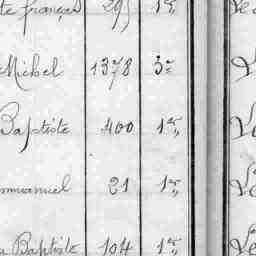 te françois 295 1er Le
Michel 1378 3e L
Baptiste 400 1er Le
mmanuel 21 1er Le
Baptiste 104 1er Le